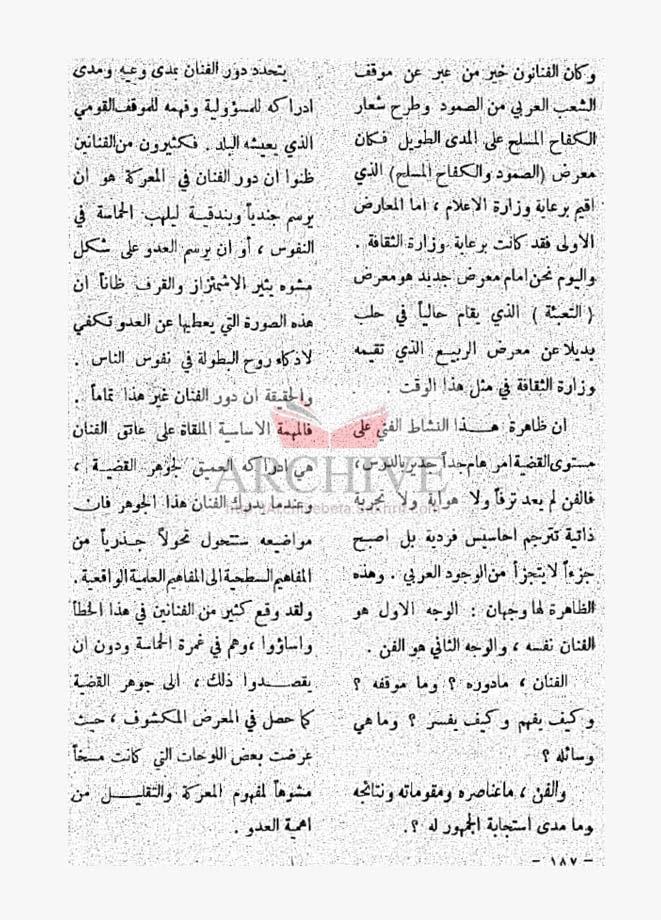 وكان الفنانون خير من عبر عن موقف
الشعب العربي من الصمود وطرح شعار
الكفاح المسلح على المدى الطويل فكان
معرض (الصمود والكفاح المسلح) الذي
اقيم برعاية وزارة الاعلام ، اما المعارض
الاولى فقد كانت برعاية وزارة الثقافة .
واليوم نحن امام معرض جديد هو معرض
( التعبئة ) الذي يقام حالياً في حلب
بديلا عن معرض الربيع الذي تقيمه
وزارة الثقافة في مثل هذا الوقت .
ان ظاهرة هـــذا النشاط الفني على
مستوى القضية امر هام جداً جدير بالدرس ،
فالفن لم يعد ترفاً ولا هواية ولا تجربة
ذاتية تترجم احاسيس فردية بل اصبح
جزءاً لا يتجزأ من الوجود العربي . وهذه
الظاهرة لها وجهان : الوجه الاول هو
الفنان نفسه ، والوجه الثاني هو الفن .
الفنان ، مادوره ؟ وما موقفه ؟
وكيف يفهم وكيف يفسر ؟ وما هي
وسائله ؟
والفن ، ما عناصره ومقوماته ونتائجه
وما مدى استجابة الجمهور له ؟.
يتحدد دور الفنان بمدى وعيه ومدى
ادراكه للمسؤولية وفهمه للموقف القومي
الذي يعيشه البلد . فكثيرون من الفنانين
ظنوا ان دور الفنان في المعركة هو ان
يرسم جندياً وبندقية ليلهب الحماسة في
النفوس ، أو ان يرسم العدو على شكل
مشوه يثير الاشمئزاز والقرف ظاناً ان
هذه الصورة التي يعطيها عن العدو تكفي
لاذكاء روح البطولة في نفوس الناس .
والحقيقة ان دور الفنان غير هذا تماماً .
فالمهمة الاساسية الملقاة على عاتق الفنان
هي ادراكه العميق لجوهر القضية ،
وعندما يدرك الفنان هذا الجوهر فان
مواضيعه ستتحول تحولاً جذرياً من
المفاهيم السطحية الى المفاهيم العلمية الواقعية .
ولقد وقع كثير من الفنانين في هذا الخطأ
واساؤوا ، وهم في غمرة الحماسة ودون ان
يقصـــدوا ذلك ، الى جوهر القضية
كما حصل في المعرض المكشوف ، حيث
عرضت بعض اللوحات التي كانت مسخاً
مشوهاً لمفهوم المعركة والتقليـــل من
اهمية العدو .
- ١٨٧ -
ARCHIVE